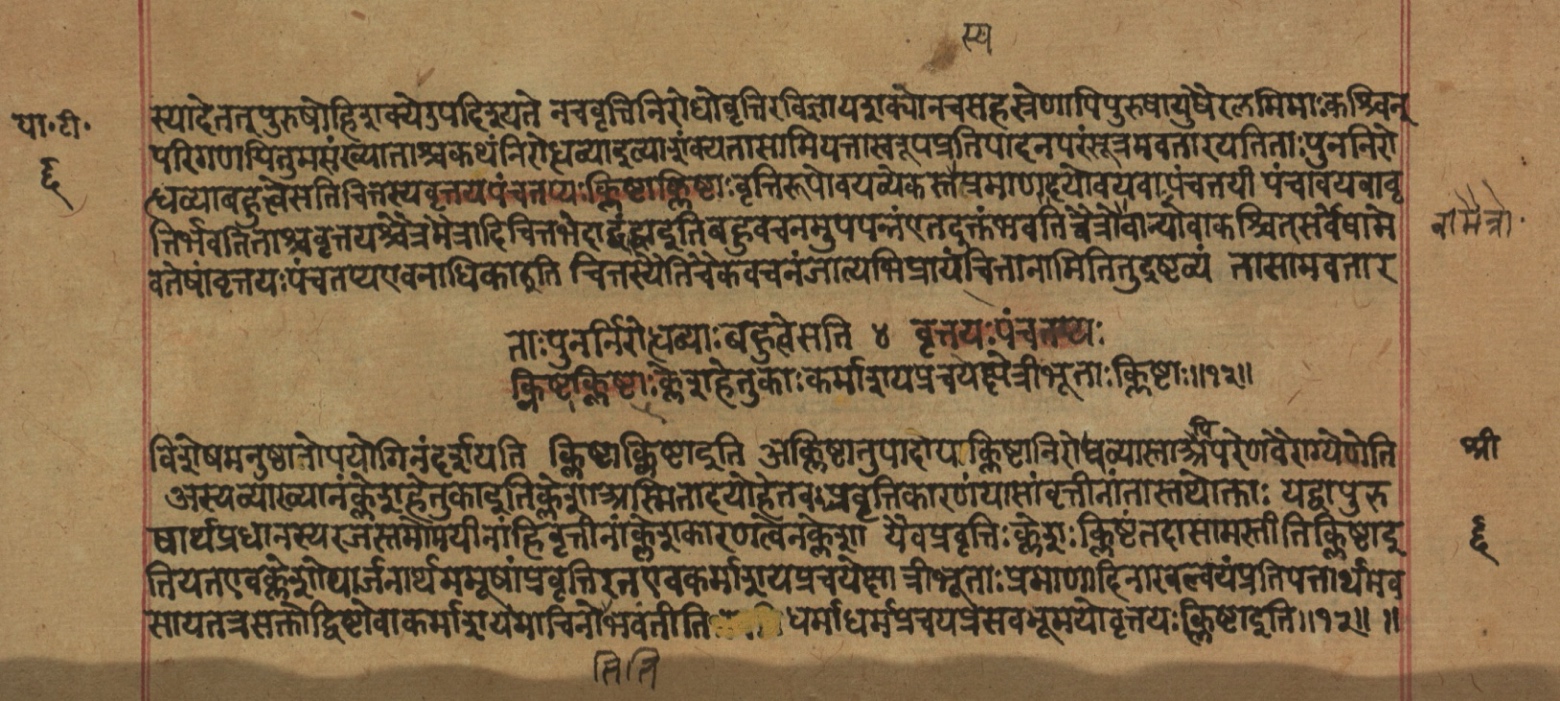 स्य
या॰टी॰
६
स्यादेतत्पुरुषोहिशक्येउपदिश्यते नचवृत्तिनिरोधोवृत्तिरविज्ञायशक्योनचसहस्रेणापिपुरुषायुषैरलमिमाःकश्चित्
परिगणयितुमसंख्याताश्चकथंनिरोद्धव्याइत्याशंक्यतासामियत्तास्वरूपप्रतिपादनपरंसूत्रमवतारयतिताःपुनर्निरो
द्धव्याबहुत्वेसतिचित्तस्यवृत्तयपंचतय्यःक्लिष्टाक्लिष्टाःवृत्तिरूपोवयव्येकस्तस्यप्रमाणादयोवयवाःपंचतयी पंचावयवावृ
त्तिर्भवतिताश्चवृत्तयश्चैत्रमैत्रादिचित्तभेदाद्बह्वइतिबहुवचनमुपपन्नंएतदुक्तंभवतिचैत्रोवान्योवाकश्चित्सर्वेषामे
वामैत्रो॰
वतेषांवृत्तयःपंचतय्यएवनाधिकाइति चित्तस्येतिचैकवचनंजात्यभिप्रायंचित्तानामितितुद्रष्टव्यं तासामवतार
ताःपुनर्निरोद्धव्याःबहुत्वेसति ४ वृत्तयःपंचतय्यः
क्लिष्टाक्लिष्टाःक्लेशहेतुकाःकर्माशयप्रचयक्षेत्रीभूताःक्लिष्टाः॥१२॥
विशेषमनुष्ठानोपयोगिनंदर्शयति क्लिष्टाक्लिष्टाइति अक्लिष्टानुपादायक्लिष्टानिरोद्धव्यास्ताअपिपरेणवैराग्येणेति
श्री
अस्यव्याख्यानंक्लेशहेतुकाइतिक्लेशाअस्मितादयोहेतवःप्रवृत्तिकारणंयासांवृत्तीनांतास्तथोक्ताः यद्वापुरु
षार्थप्रधानस्यरजस्तमोमयीनांहिवृत्तीनांक्लेशकारणत्वेनक्लेशा यैवप्रवृत्तिःक्लेशःक्लिष्टंतदासामस्तीतिक्लिष्टाइ
६
तियतएवक्लेशोपार्जनार्थममूषांप्रवृत्तिरतएवकर्माशयप्रचयेक्षेत्रीभूताःप्रमाणादिनाखल्वयंप्रतिपत्तार्थमव
सायतत्रसक्तोद्विष्टोवाकर्माशयमाचिनोभवंतीति धर्माधर्मप्रचयप्रसवभूमयोवृत्तयःक्लिष्टाइति॥१२॥ ॥
तिति